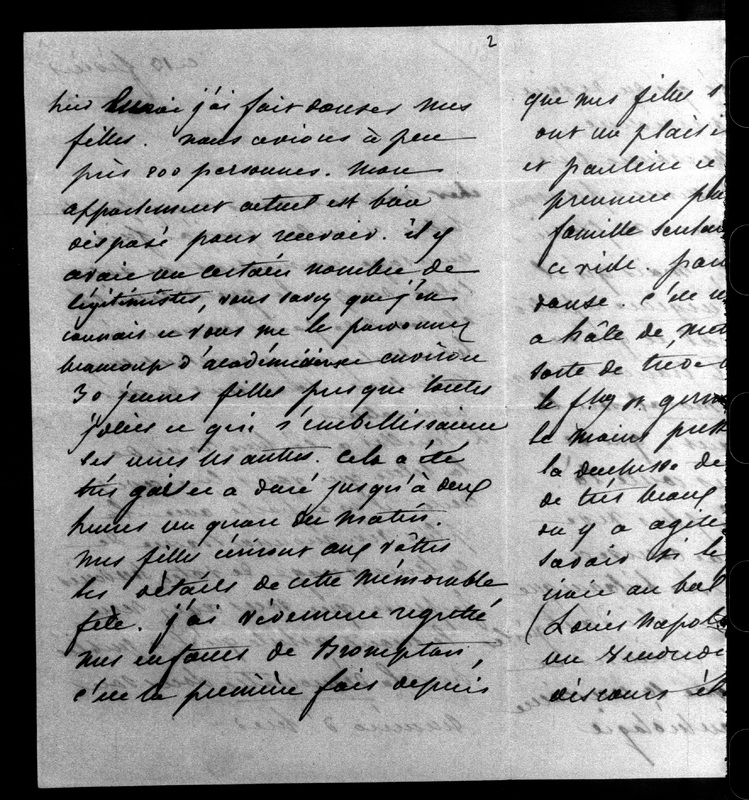 2
hier j'ai fait danser mes
filles. nous avions à peu
près 200 personnes. mon
appartement actuel est bien
disposé pour recevoir. il y
avait un certain nombre de
légitimistes, vous savez que j'en
connais et vous me le pardonnez
beaucoup d'académiciens environ
30 jeunes filles presque toutes
jolies et qui s'embellissaient
les unes les autres. cela a été
très gai et a duré jusqu'à deux
heures un quart du matin.
mes filles écriront aux vôtres
les détails de cette mémorable
fête. j'ai vivement regretté
mes enfants de Brompton,
c'est la première fois depuis
que mes filles
ont un plaisi
et pauline et
première
famille
ce vide. pour
danse. c'est
a hâte de
sorte de
le fbg st. germ
le moins
la duchesse de
de très beaux
on y a agité
savoir si le
irait au bal
(Louis Napol
un
discours